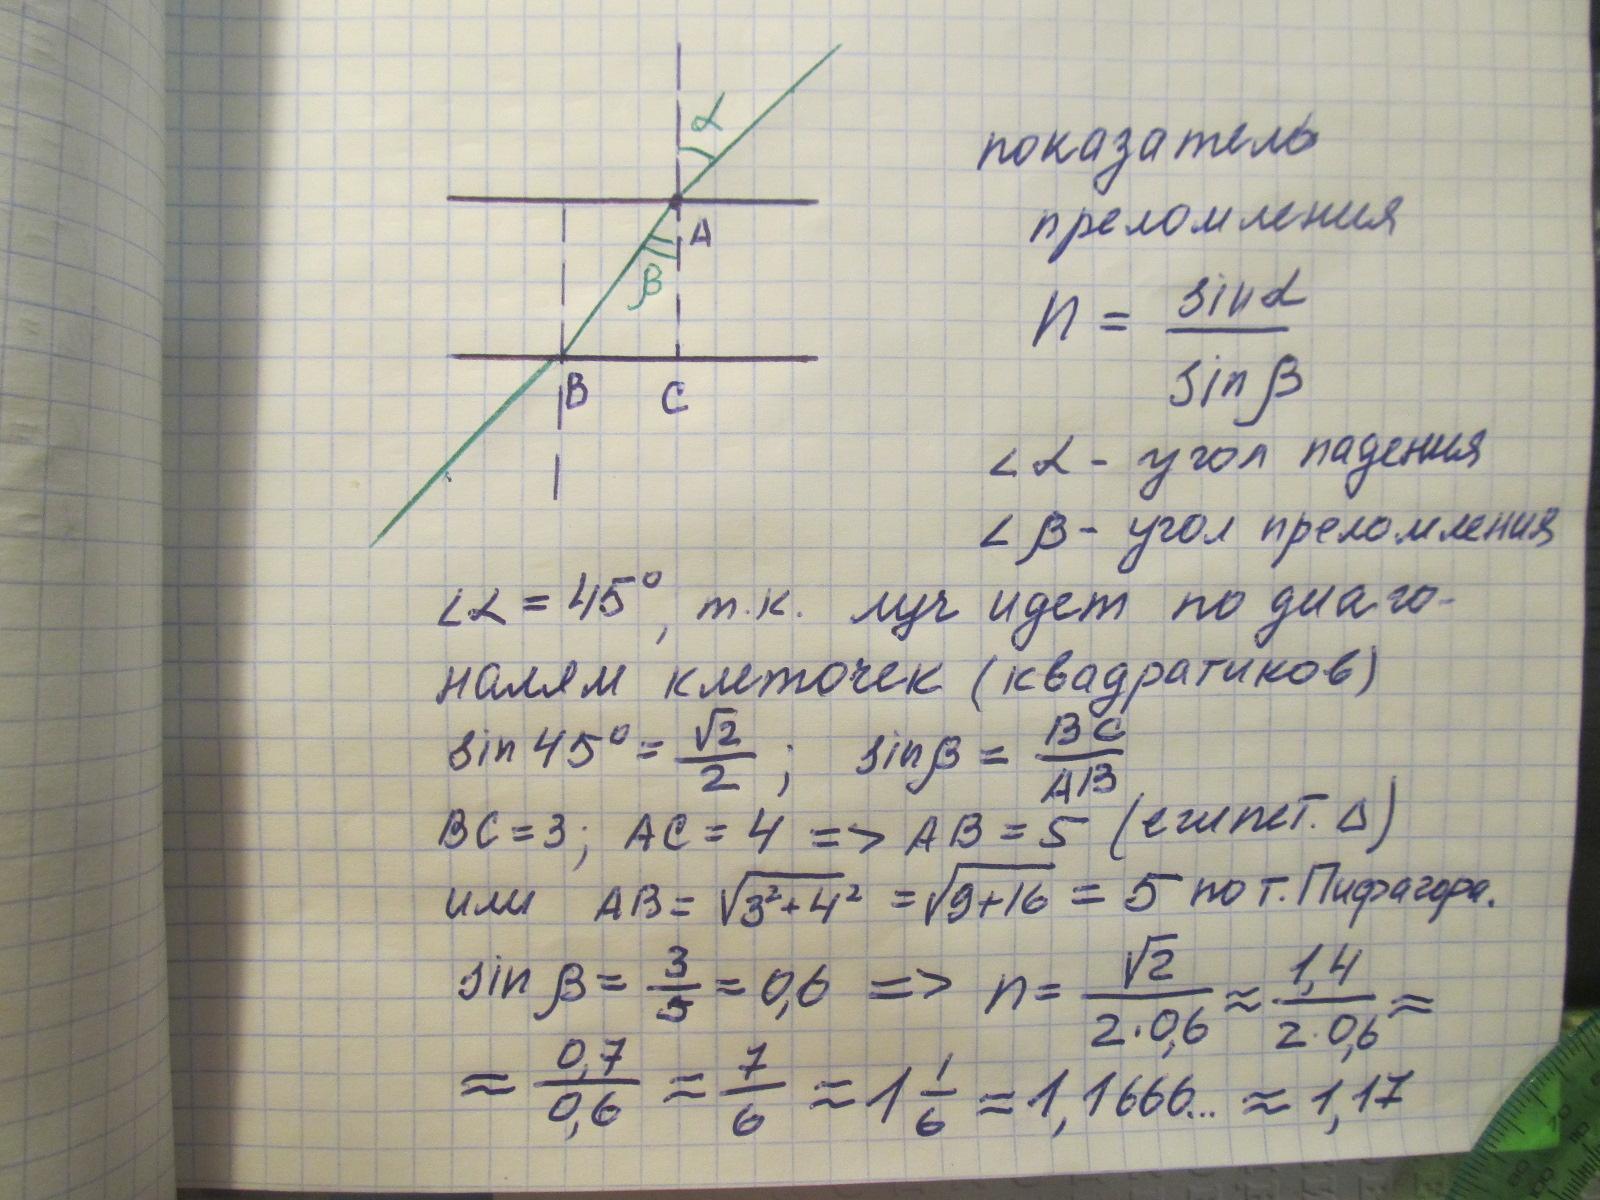 α
A
β
B C
показатель
преломления
n = sinα / sinβ
∠α - угол падения
∠β - угол преломления
∠α = 45°, т.к. луч идет по диаго-
налям клеточек (квадратиков)
sin 45° = √2/2 ; sinβ = BC/AB
BC = 3; AC = 4 => AB = 5 (египет. Δ)
или AB = √3²+4² = √9+16 = 5 по т. Пифагора.
sin β = 3/5 = 0,6 => n = √2/2·0,6 ≈ 1,4/2·0,6 ≈
≈ 0,7/0,6 ≈ 7/6 ≈ 1 1/6 ≈ 1,1666... ≈ 1,17